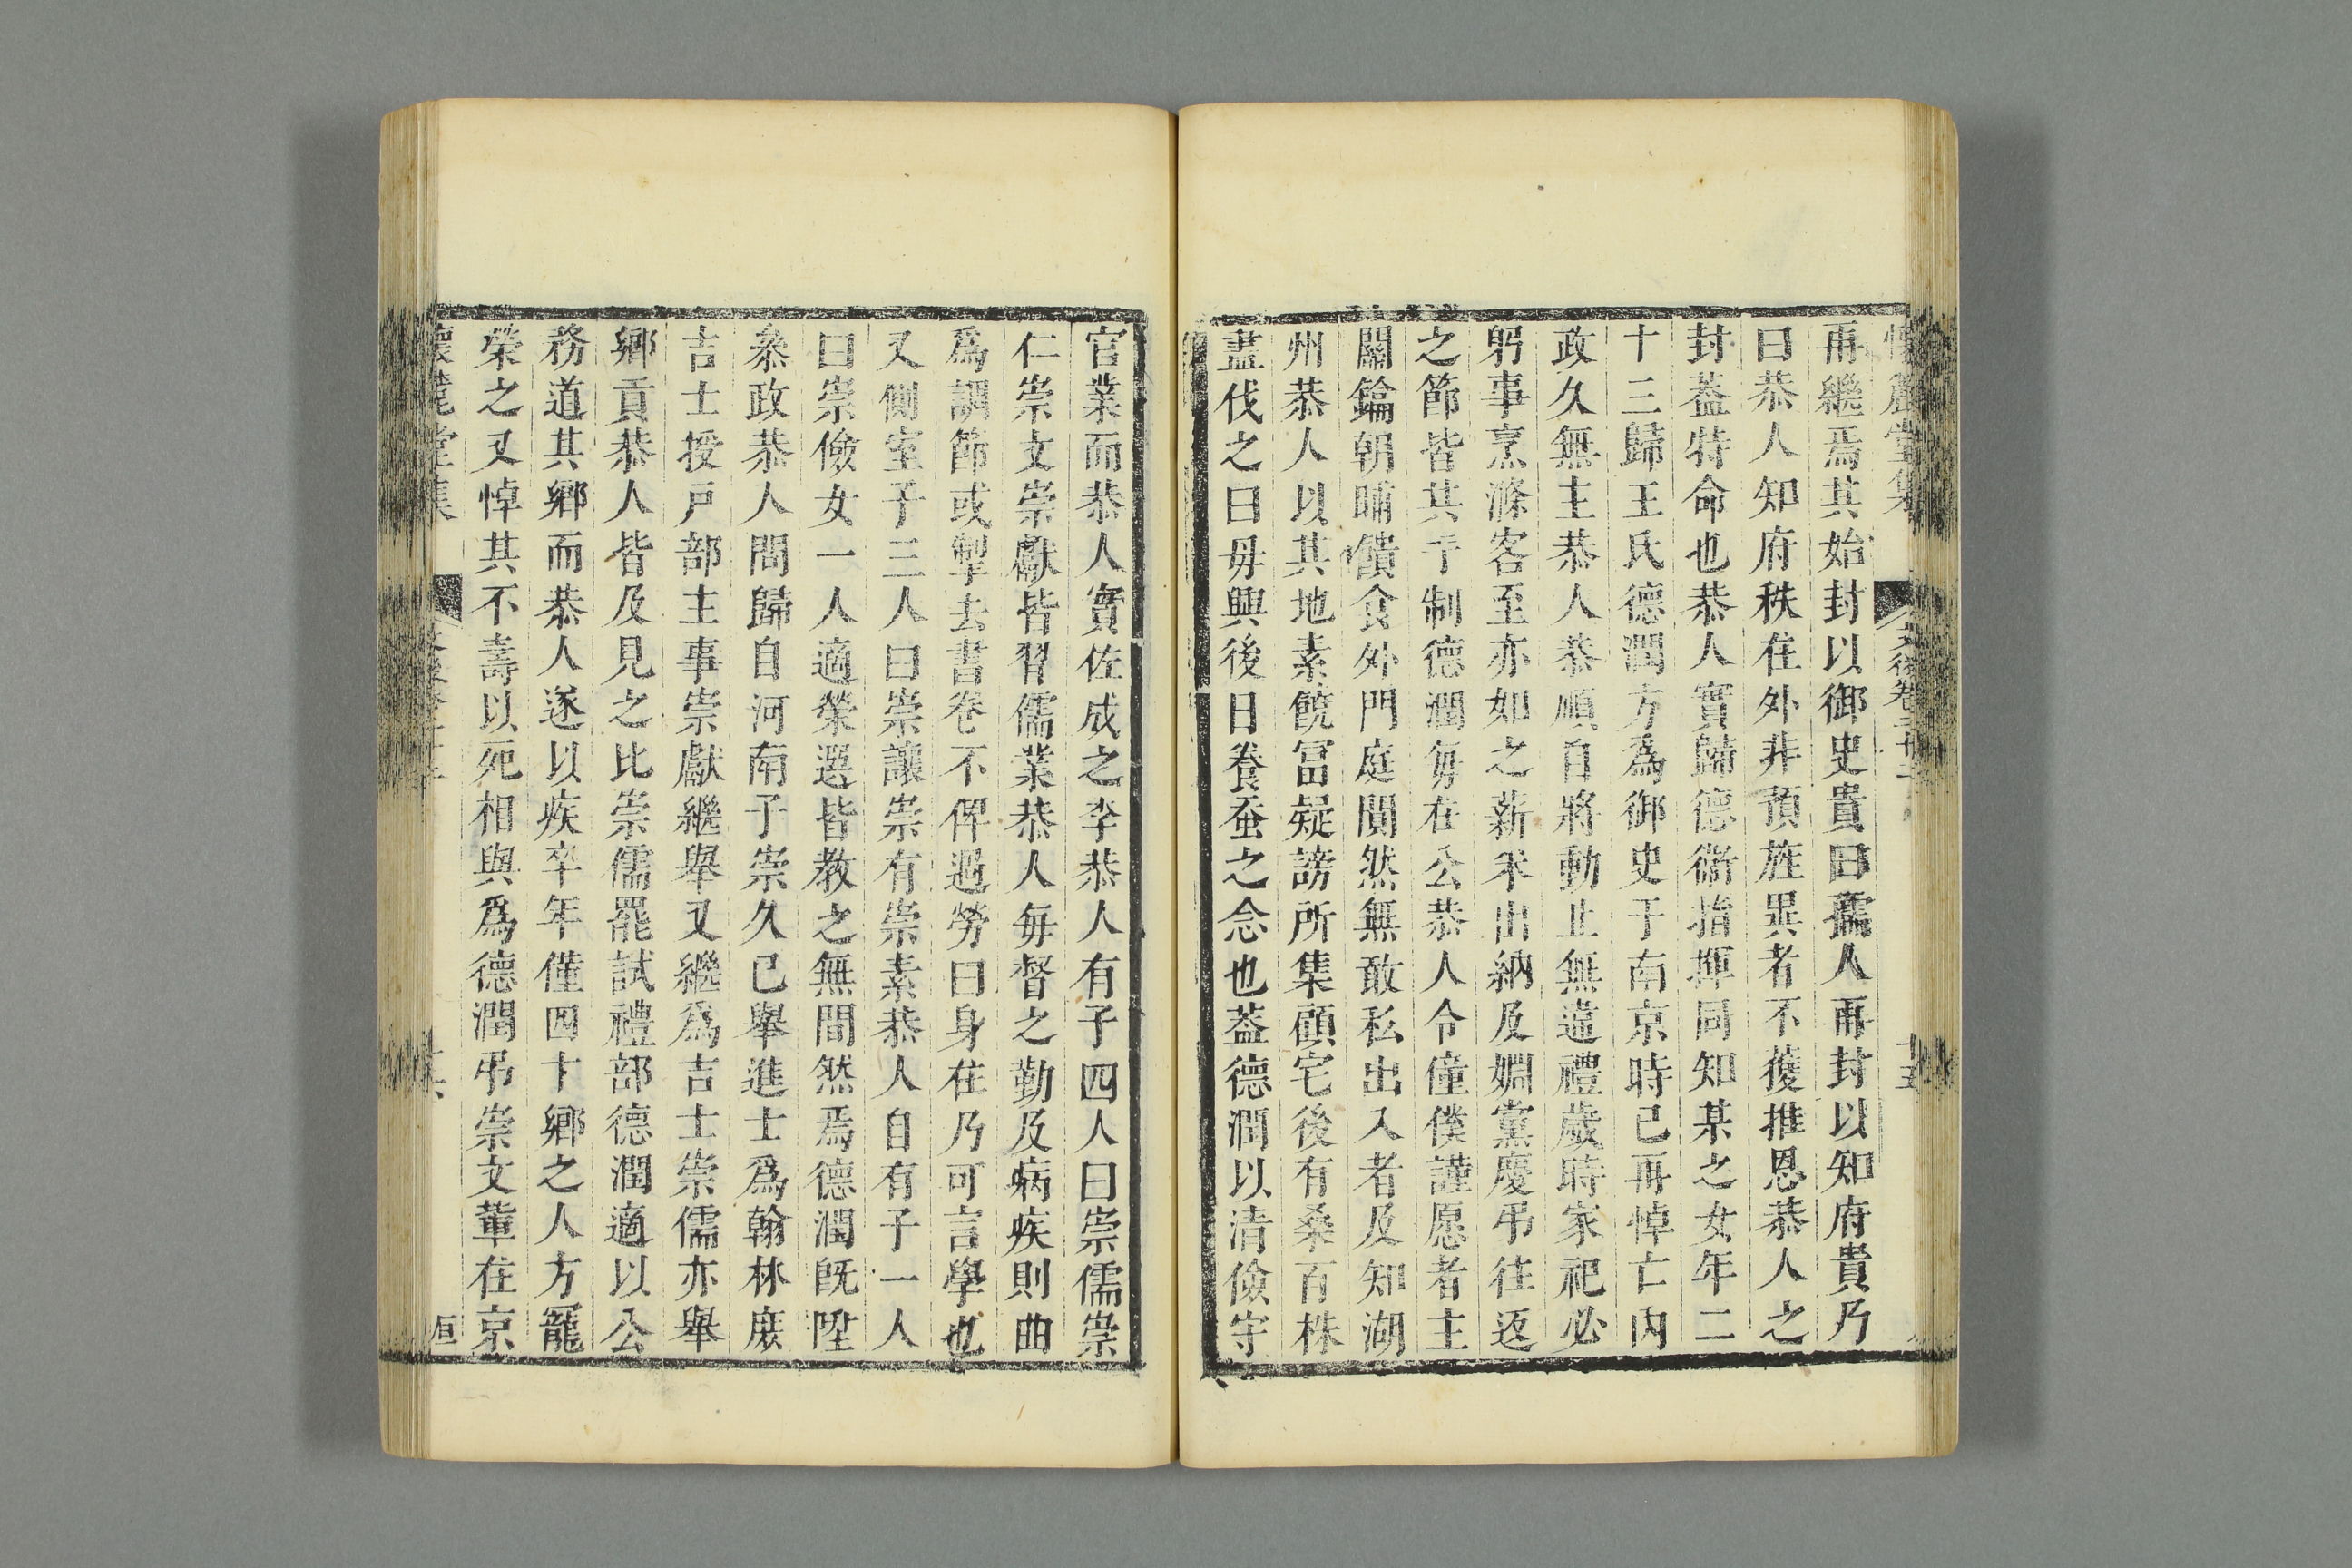 懷麓堂集 文後卷二十三 十五
再繼焉其始封以御史貴曰孺人再封以知府貴乃
曰恭人知府秩在外非預旌異者不獲推恩恭人之
封蓋特命也恭人實歸德衞指揮同知某之女年二
十三歸王氏德潤方為御史于南京時已再悼亡内
政久無主恭人恭順自將動止無違禮歲時家祀必
躬事烹滌客至亦如之薪米出納及婣黨慶弔往返
之節皆其手制德潤每在公恭人令僮僕謹愿者主
關鑰朝晡饋食外門庭閴然無敢私出入者及知湖
州恭人以其地素饒冨疑謗所集顧宅後有桑百株
盡伐之曰毋興後日養蚕之念也蓋德潤以清儉守
官業而恭人實佐成之李恭人有子四人曰崇儒崇
仁崇文崇獻皆習儒業恭人毎督之勤及病疾則曲
爲調節或掣去書卷不俾過勞曰身在乃可言學也
又側室子三人曰崇讓崇有崇素恭人自有子一人
曰崇儉女一人適榮選皆教之無間然焉德潤既陞
叅政恭人間歸自河南子崇久已舉進士爲翰林庶
吉士授戸部主事崇獻繼舉又繼爲吉士崇儒亦舉
鄉貢恭人皆及見之比崇儒罷試禮部德潤適以公
務道其鄉而恭人遂以疾卒年僅四十鄉之人方寵
榮之又悼其不壽以死相與爲德潤弔崇文軰在京
懷麓堂集 十六 亘